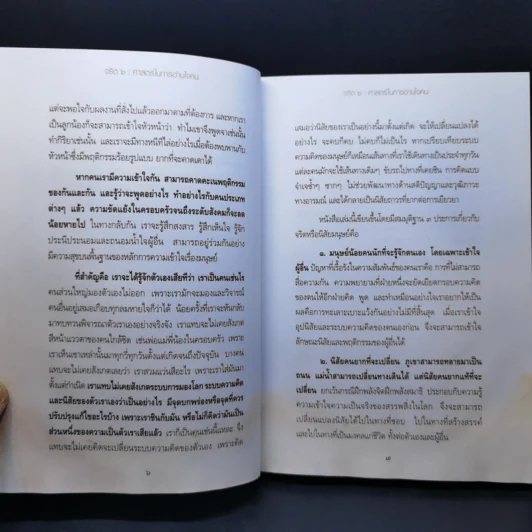 จริต ๖ : ศาสตร์ในการอ่านใจคน
แต่จะพอใจกับผลงานที่สั่งไปแล้วออกมาตามที่ต้องการ และหากเรา
เป็นลูกน้องก็จะสามารถเข้าใจหัวหน้าว่า ทำไมเขาจึงพูดจาเช่นนั้น
ทำกิริยาเช่นนั้น และเราจะมีทางหนีทีไล่อย่างไรเมื่อต้องพบพานกับ
หัวหน้าซึ่งมีพฤติกรรมร้อยรูปแบบ ยากที่จะคาดเดาได้
หากคนเรามีความเข้าใจกัน สามารถคาดคะเนพฤติกรรม
ของกันและกัน และรู้ว่าจะพูดอย่างไร ทำอย่างไรกับคนประเภท
ต่างๆ แล้ว ความขัดแย้งในครอบครัวจนถึงระดับสังคมก็จะลด
น้อยหายไป ในทางกลับกัน เราจะรู้สึกสงสาร รู้สึกเห็นใจ รู้จัก
ประนีประนอมและถนอมน้ำใจผู้อื่น สามารถอยู่ร่วมกันอย่าง
มีความสุขบนพื้นฐานของหลักการความเข้าใจเรื่องมนุษย์
ที่สำคัญคือ เราจะได้รู้จักตัวเองเสียทีว่า เราเป็นคนเช่นไร
คนส่วนใหญ่มองตัวเองไม่ออก เพราะเรามักจะมองและวิจารณ์
คนอื่นอยู่เสมอเกือบทุกลมหายใจก็ว่าได้ น้อยครั้งที่เราจะหันกลับ
มาทบทวนพิจารณาตัวเราเองอย่างจริงจัง เราแทบจะไม่เคยสังเกต
สีหน้าแววตาของคนใกล้ชิด เช่นพ่อแม่พี่น้องในครอบครัว เพราะ
เราเห็นเขาเหล่านั้นมาทุกวี่ทุกวันตั้งแต่เกิดจนถึงปัจจุบัน บางคน
แทบจะไม่เคยสังเกตเลยว่า เราสวมแว่นสีอะไร เพราะเราใส่มันมา
ตั้งแต่กำเนิด เราแทบไม่เคยสังเกตระบบการมองโลก ระบบความคิด
และนิสัยของตัวเราเองว่าเป็นอย่างไร มีจุดบกพร่องหรือจุดที่ควร
ปรับปรุงแก้ไขอะไรบ้าง เพราะเราชินกับมัน หรือไม่ก็คิดว่ามันเป็น
ส่วนหนึ่งของความเป็นตัวเราเสียแล้ว เราก็เป็นคนเช่นนี้แหละ จึง
แทบจะไม่เคยคิดจะเปลี่ยนระบบความคิดของตัวเอง เพราะคิด
๖
จริต ๖ : ศาสตร์ในการอ่านใจคน
เสมอว่านิสัยของเราเป็นอย่างนี้มาตั้งแต่เกิด จะให้เปลี่ยนแปลงได้
อย่างไร จะคบก็คบ ไม่คบก็ไม่เป็นไร หากเปรียบเทียบระบบ
ความคิดของมนุษย์ก็เหมือนเส้นทางที่เราใช้เดินทางเป็นประจำทุกวัน
แต่ละคนมักจะใช้เส้นทางเดิมๆ ขับรถไปทางที่เคยชิน การคิดแบบ
จำเจซ้ำๆ ซากๆ ไม่ช่วยพัฒนาทางด้านสติปัญญาและวุฒิภาวะ
ทางอารมณ์ และได้กลายเป็นนิสัยถาวรที่ยากต่อการเยียวยา
หนังสือเล่มนี้เขียนขึ้นโดยมีสมมุติฐาน ๓ ประการเกี่ยวกับ
จริตหรือนิสัยมนุษย์คือ
๑. มนุษย์น้อยคนนักที่จะรู้จักตนเอง โดยเฉพาะเข้าใจ
ผู้อื่น ปัญหาที่เรื้อรังในความสัมพันธ์ของคนเราคือ การที่ไม่สามารถ
สื่อความกัน ความพยายามที่ฝ่ายหนึ่งจะยัดเยียดกรอบความคิด
ของตนให้อีกฝ่ายคิด พูด และทำเหมือนอย่างใจเราอยากให้เป็น
ผลคือการทะเลาะเบาะแว้งกันอย่างไม่มีที่สิ้นสุด เมื่อเราเข้าใจ
อุปนิสัยและระบบความคิดของตนเองก่อน จึงจะสามารถเข้าใจ
ลักษณะนิสัยและพฤติกรรมของผู้อื่นได้
๒. นิสัยคนยากที่จะเปลี่ยน ภูเขาสามารถทลายมาเป็น
ถนน แม่น้ำสามารถเปลี่ยนทางเดินได้ แต่นิสัยคนยากแท้ที่จะ
เปลี่ยน ยกเว้นกรณีฝึกพลังจิตฝึกพลังสมาธิ ประกอบกับความรู้
ความเข้าใจความเป็นจริงของสรรพสิ่งในโลก จึงจะสามารถ
เปลี่ยนแปลงนิสัยได้ไปในทางที่ชอบ ไปในทางที่สร้างสรรค์
และไปในทางที่เป็นมงคลแก่ชีวิต ทั้งต่อตัวเองและผู้อื่น
๗